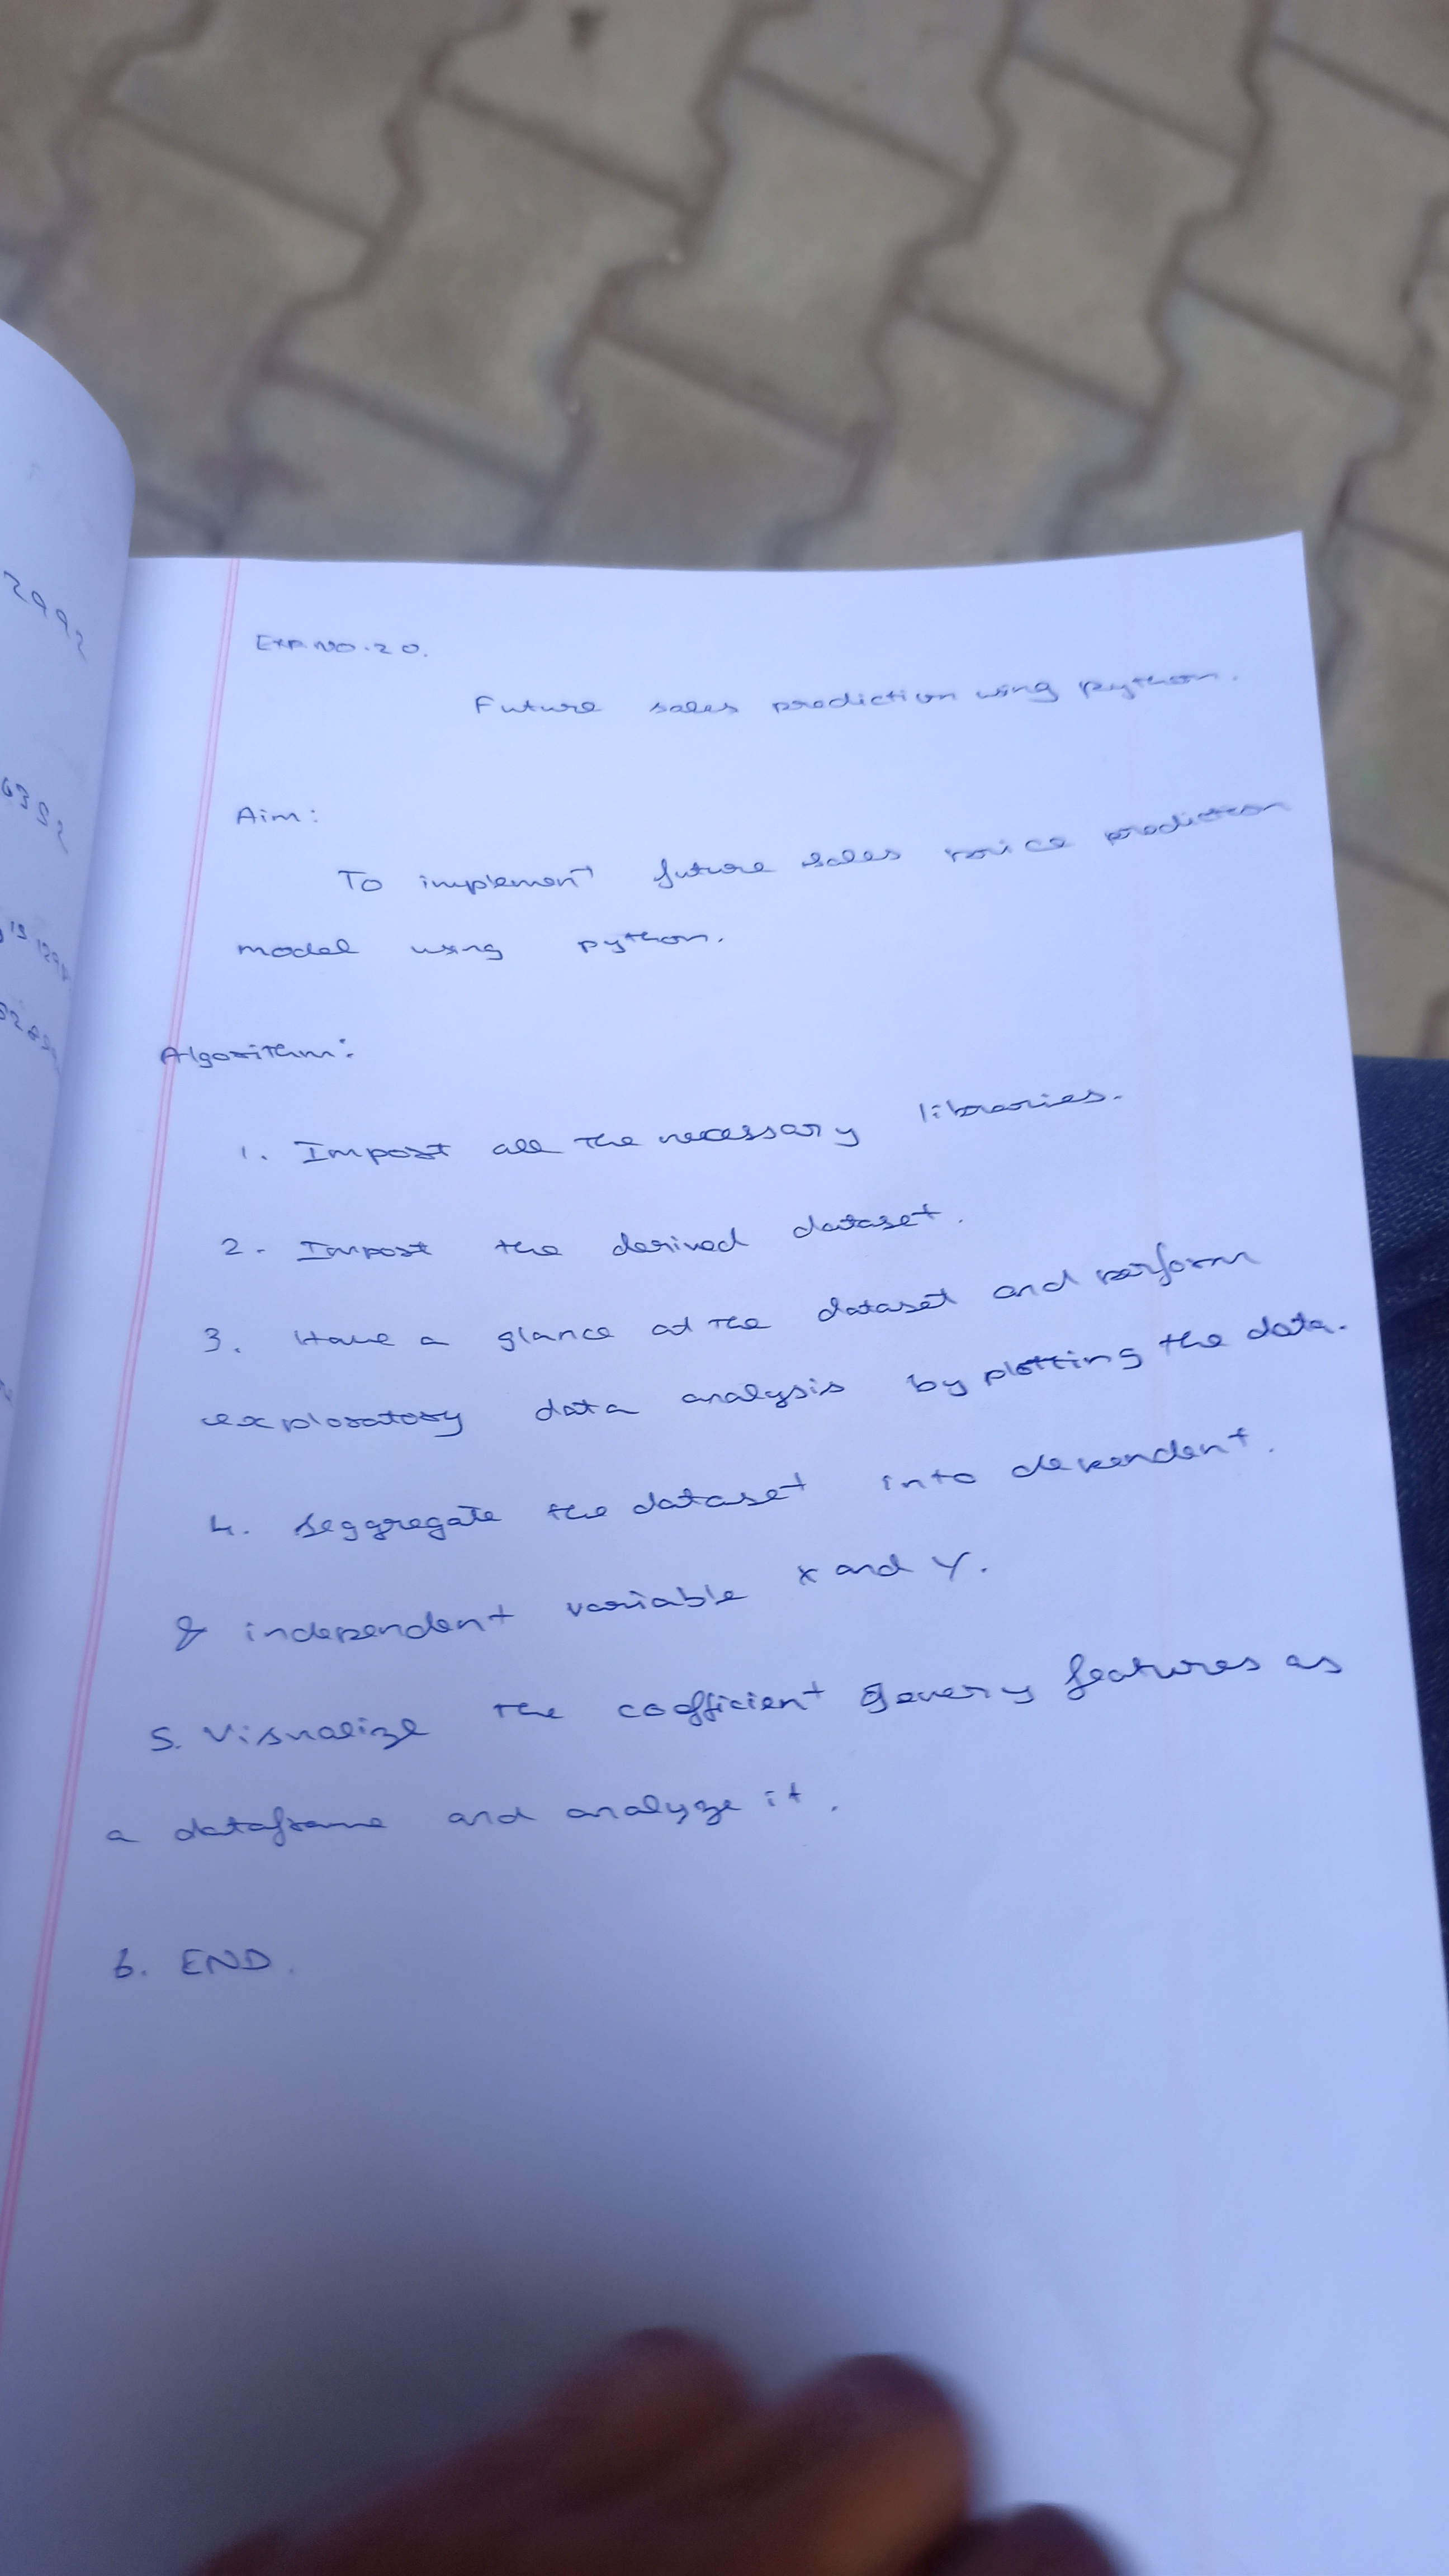 EXP.NO.20.
Future sales prediction using python.
Aim:
To implement future sales price prediction
model using python.
Algorithm:
1. Import all the necessary libraries.
2. Import the derived dataset.
3. Have a glance at the dataset and perform
exploratory data analysis by plotting the data.
4. Seggregate the dataset into dependent.
& independent variable x and y.
5. Visualize the cofficient features as
a dataframe and analyze it.
6. END.
2992